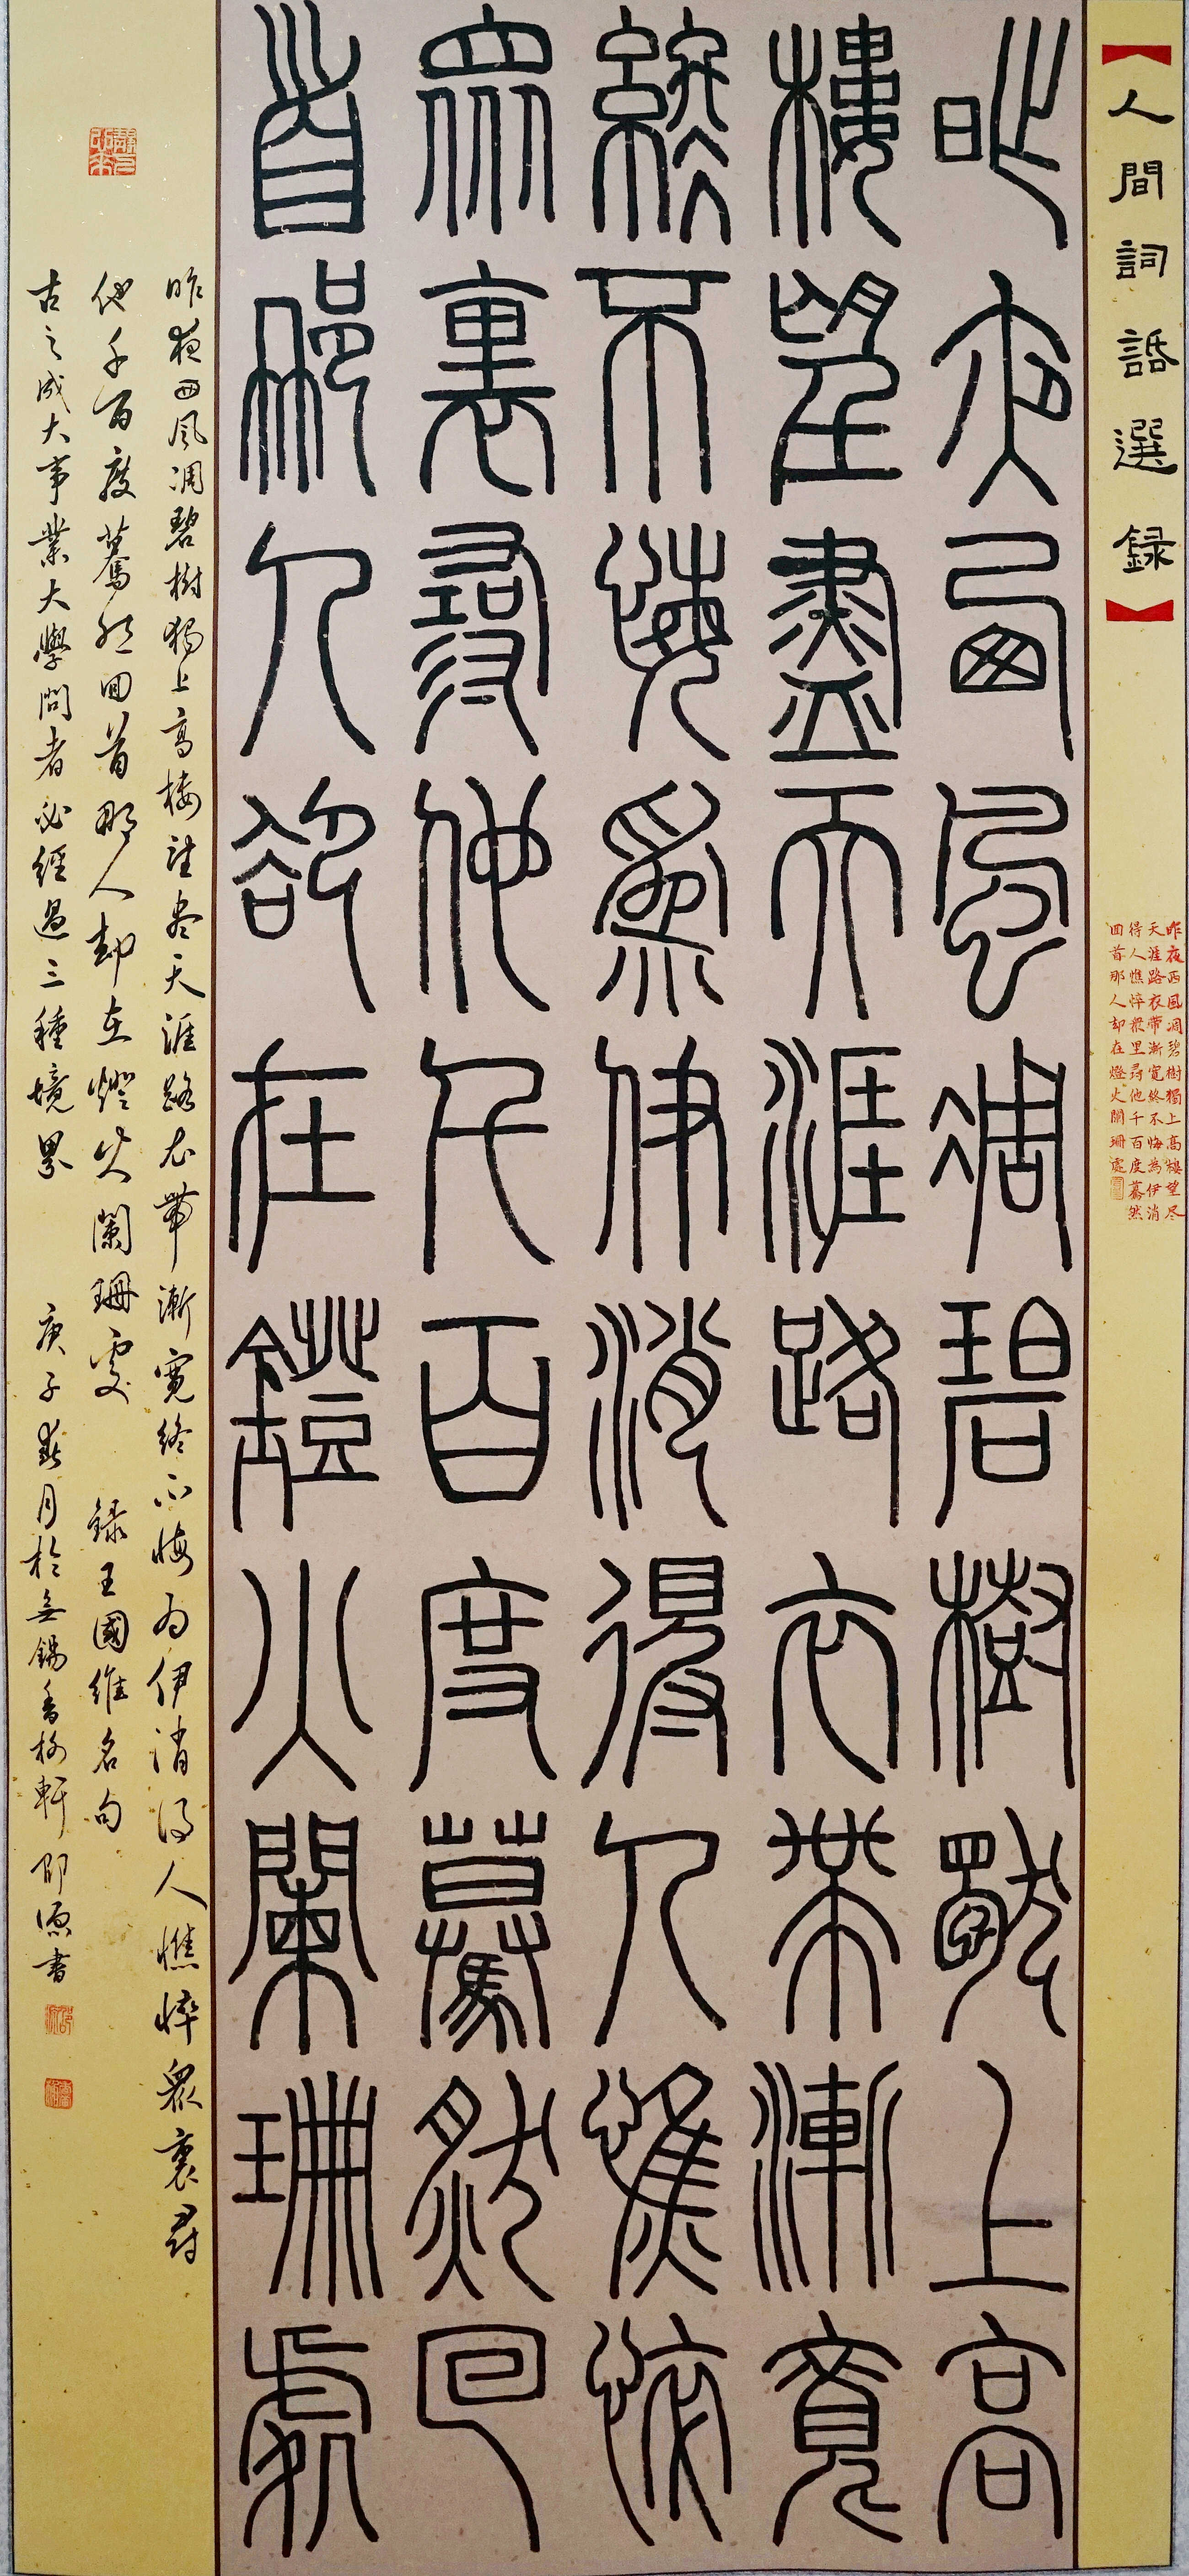 【人間詞話選録】
昨夜西風凋碧樹獨上高樓望尽
天涯路衣帶漸寬終不悔為伊消
得人憔悴衆里尋他千百度驀然
回首那人却在燈火闌珊處
昨夜西風凋碧樹獨上高
樓望盡天涯路衣帶漸寬
終不悔爲伊消得人憔悴
衆裏尋他千百度驀然回
首那人卻在鐙火闌珊處
昨夜西風凋碧樹獨上高樓望盡天涯路衣帶漸寬終不悔為伊消得人憔悴衆裏尋
他千百度驀然回首那人却在燈火闌珊處 録王國維名句
古之成大事業大學問者必經過三種境界 庚子 月於無錫香梅軒 邵源書